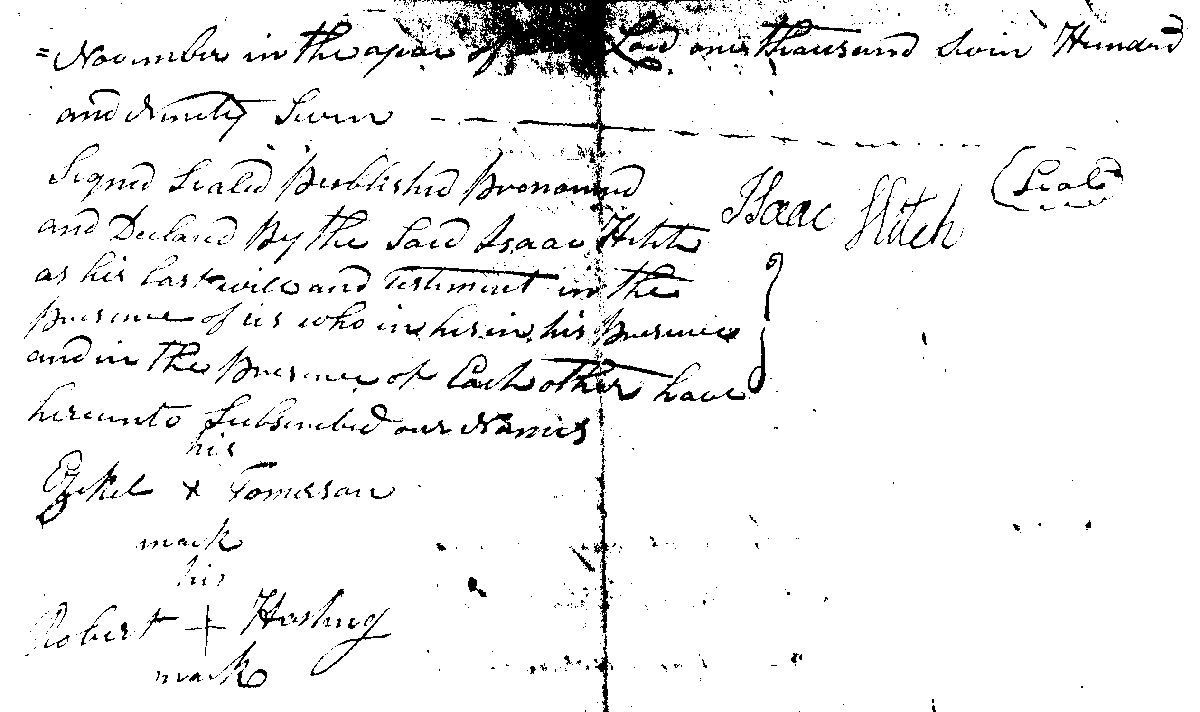 =November in the year of Lord one thousand Sevin Hundred
and Ninety Seven
Signed Sealed Published Pronounced
and Declared By the Said Isaac Hitch
as his last will and testiment in the
Presence of us who in his in his Presence
and in the Presence of Each other have
hereunto Subscribed our Names
Isaac Hitch (Seal)
his
Ezekel x Tomerson
mark
his
Robert + Hasting
mark